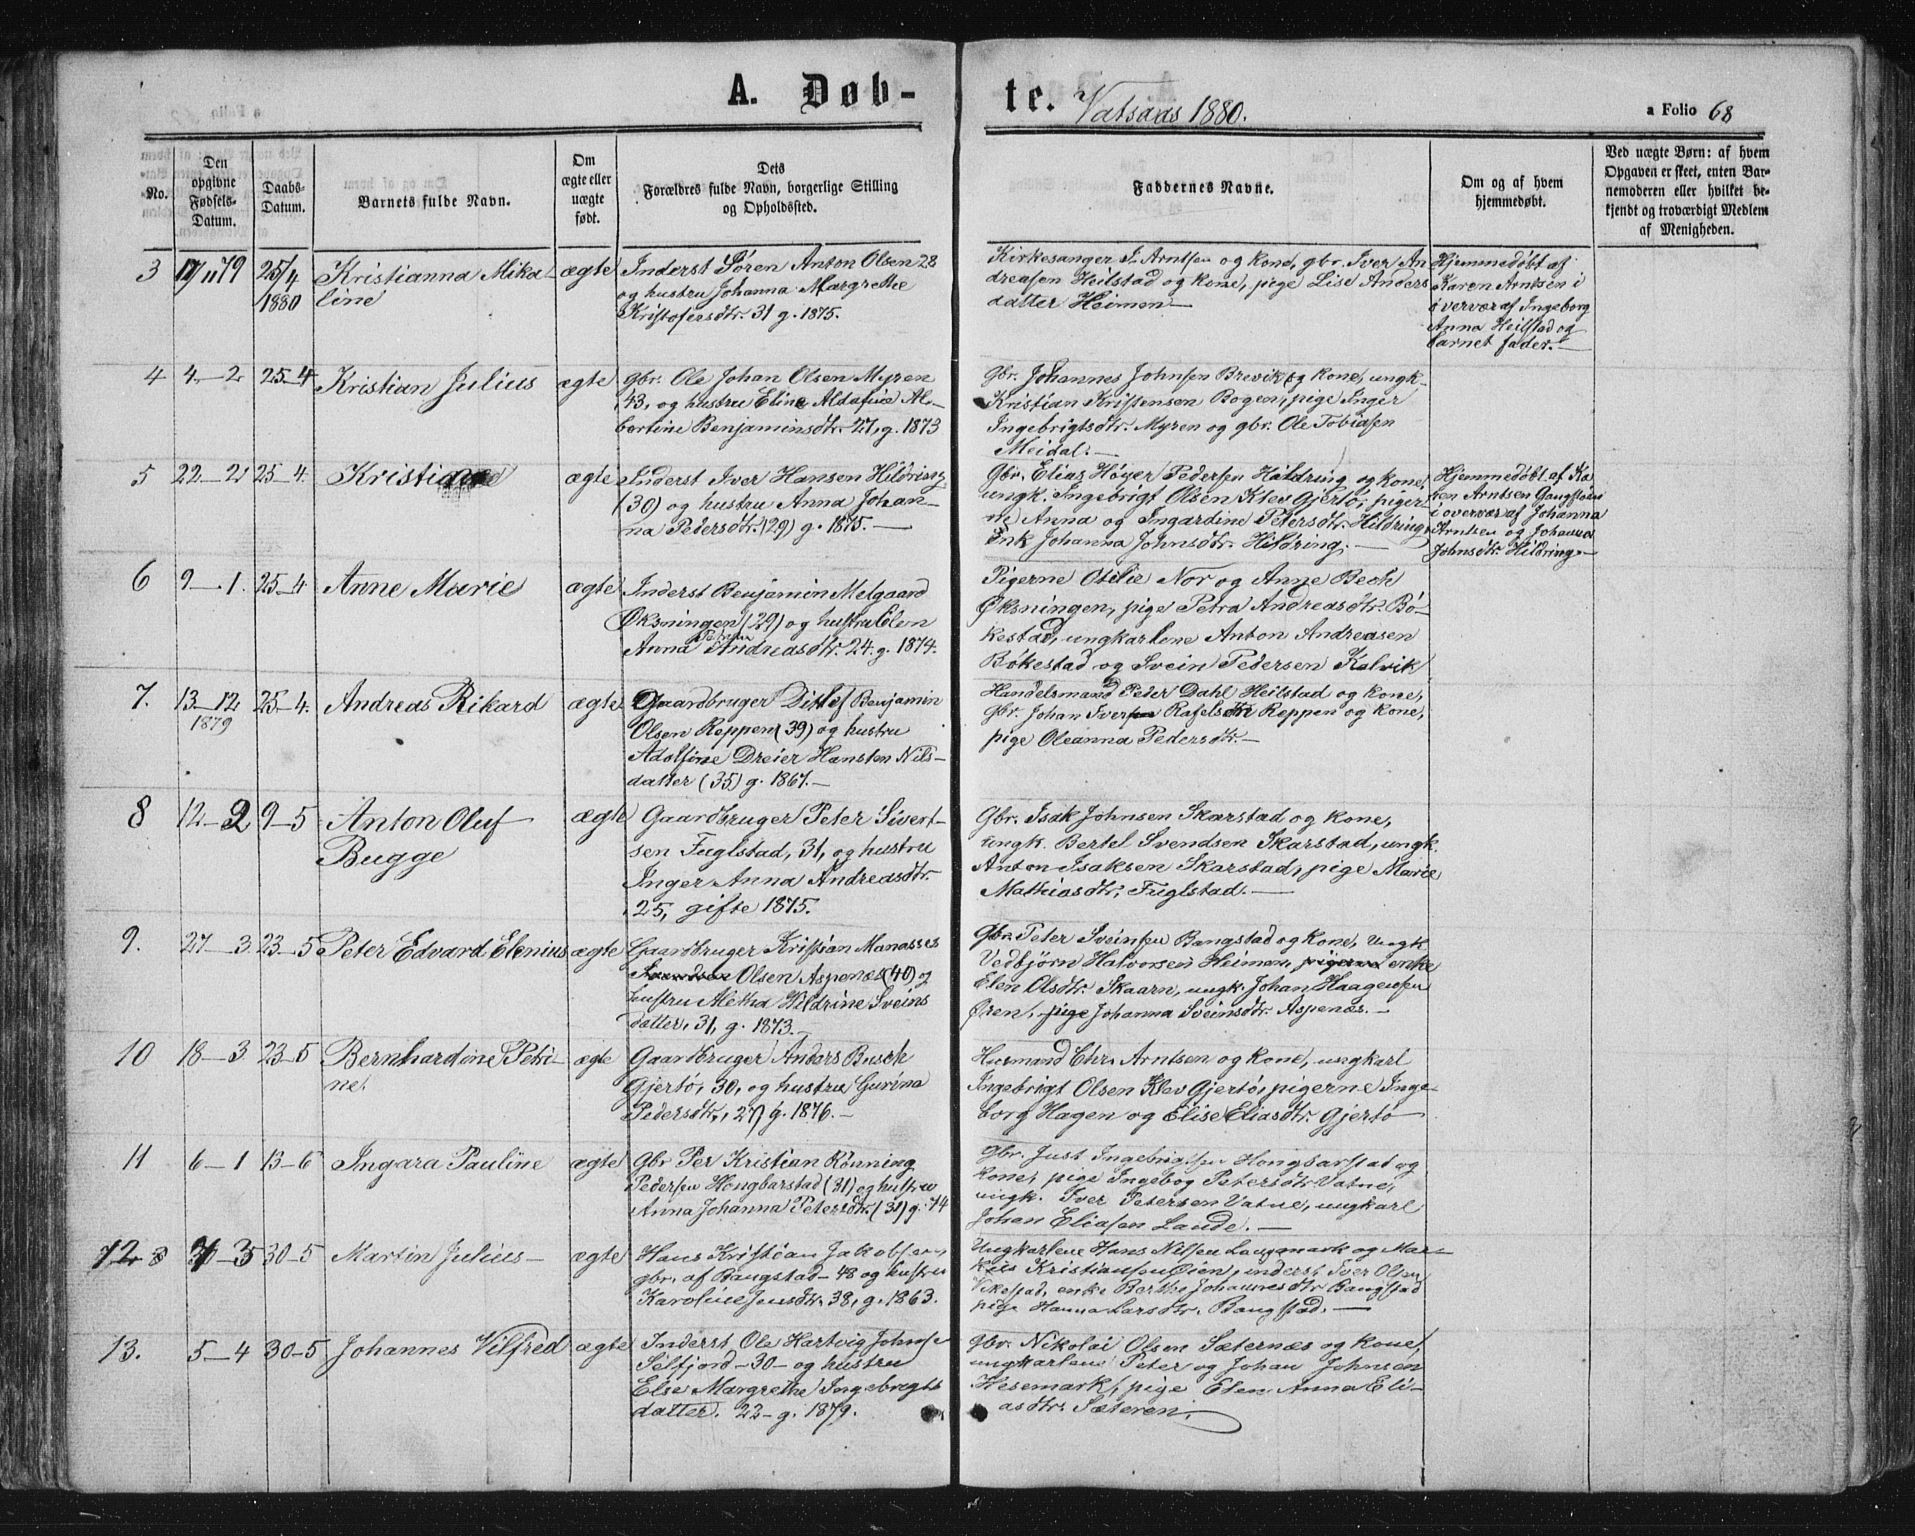 A. Døb-
te.
Vatsaas 1880.
a Folio 68
No.
Den
opgivne
Fødsels-
Datum.
Daabs-
Datum.
Barnets fulde Navn.
Om
ægte eller
uægte
født.
Dets
Forældres fulde Navn, borgerlige Stilling
og Opholdssted.
Faddernes Navne.
Om og af hvem
hjemmedøbt.
Ved uægte Børn: af hvem
Opgaven er skeet, enten Bar-
nemoderen eller hvilket be-
kjendt og troværdigt Medlem
af Menigheden.
3
79
25/4
1880
Kristianna Mika-
line
ægte
Inderst Søren Anton Olsen 28
og hustru Johanna Margrethe
Kristofersdtr. 31 g. 1875.
Kirkesanger Arntsen og kone, gbr. Iver An
dreasen Heilstad og kone, pige Lise Anders
datter Heimen
Hjemmedøbt af
Karen Arntsen i
overvær af Ingeborg
Anna Heilstad og
barnet fader.
4
4-2
25-4
Kristian Julius
ægte
gbr. Ole Johan Olsen Myren
43, og hustru Eline Al-
bertine Benjaminsdtr. 27, g. 1873
gbr. Johannes Johnsen Brevik og kone, ungk.
Kristian Kristensen Bogen, pige Inger
Ingebrigtsdtr. Myren og gbr. Ole Tobiasen
Meidal.
5
22-2
25-4.
ægte
Inderst Iver Hansen Hildring
(30) og hustru Anna Johan-
na Pedersdtr. (29) g. 1875.
Gbr. Elias Høyer Pedersen Hildring og kone,
ungk. Ingebrigt Olsen Klev Gjertø, piger-
ne Anna og Ingardine Petersdtr. Hildring,
Enk Johanna Johnsdtr. Hildring.
Hjemmedøbt af Ka
ren Arntsen
i overvær af Johanna
Arntsen og Johanna
Johnsdtr Hildring.
6
9-1.
25-4
Anne Marie
ægte
Inderst Benjamin Melgaard
Øksningen (29) og hustru Elen
Anna Andreasdtr. 24. g. 1874.
Pigerne Otilie Nor og Anne Beck
Øksningen, pige Petra Andreasdtr. Bö-
kestad, ungkarlene Anton Andreasen
Bökestad og Svein Pedersen Kalvik
7.
13-12
1879
25-4.
Andreas Rikard
ægte
Gaardbruger Ditlef Benjamin
Olsen Reppen (39) og hustru
Adolfine Dreier Hansten Nils-
datter (35) g. 1867.
Handelsmand Peter Dahl Heilstad og kone,
gbr. Johan Iversen Rafelsdtr Reppen og kone,
pige Oleanna Pedersdtr.
8
12-2
9-5
Anton Oluf
Bugge
ægte
Gaardbruger Peter Sivert-
sen Fuglstad, 31, og hustru
Inger Anna Andreasdtr.
25, gifte 1875.
Gbr. Isak Johnsen Skarstad og kone,
ungk. Bertel Svendsen Skarstad, ungk.
Anton Isaksen Skarstad, pige Marie
Mathiasdtr. Fuglstad.
9.
27-3
23-5
Peter Edvard Elenius
ægte
Gaardbruger Kristian Manasses
Olsen Aspenæs (40) og
hustru Aletha Hildrine Sveins
datter, 31, g. 1873.
Gbr. Peter Sveinsen Bangstad og kone, ungk
Vedbjörn Halvorsen Heimen, pigerne enke
Elen Olsdtr. Skaarn, ungk. Johan Haagensen
Øren, pige Johanna Sveinsdtr. Aspenæs.
10
18-3
23-5
Bernhardine Petri-
ne.
ægte
Gaardbruger Anders Busch
Gjertø, 30, og hustru Gurina
Pedersdtr, 27, g. 1876.
Husmand Chr. Arntsen og kone, ungkarl
Ingebrigt Olsen Klev Gjertö, pigerne Inge-
borg Hagen og Elise Eliasdtr. Gjertö
11
6-1
13-6
Ingara Pauline
ægte
Gbr Per Kristian Rönning
Pedersen Hongbarstad (31) og hustru
Anna Johanna Petersdtr. (31) g. 74
Gbr. Just Ingebrigtsen Hongbarstad og
kone, pige Ingebog Petersdtr Vatne,
ungk. Iver Petersen Vatne, ungkarl
Johan Eliasen Laude.
12
30-5
Martin Julius
ægte
Hans Kristian Jakobsen,
gbr. af Bangstad - 48 og hustru
Karoline Jensdtr. 38, g. 1863.
Ungkarlene Hans Nilsen Langmark og Mar-
kus Kristiansen Øien, inderst Iver Olsen
Vikestad, enke Berthe Johannesdtr Bangstad
pige Hanna Larsdtr. Bangstad.
13.
5-4
30-5
Johannes Vilfred
ægte
Inderst Ole Hartvig Johnse
Selfjord - 30 - og hustru
Else Margrethe Ingebregts
datter. 23 - g. 1879.
gbr. Nikolai Olsen Sæternes og kone,
ungkarlene Peter og Johan Johnsen
Hesemark, pige Elen Anna Eli-
asdtr. Sæteren.